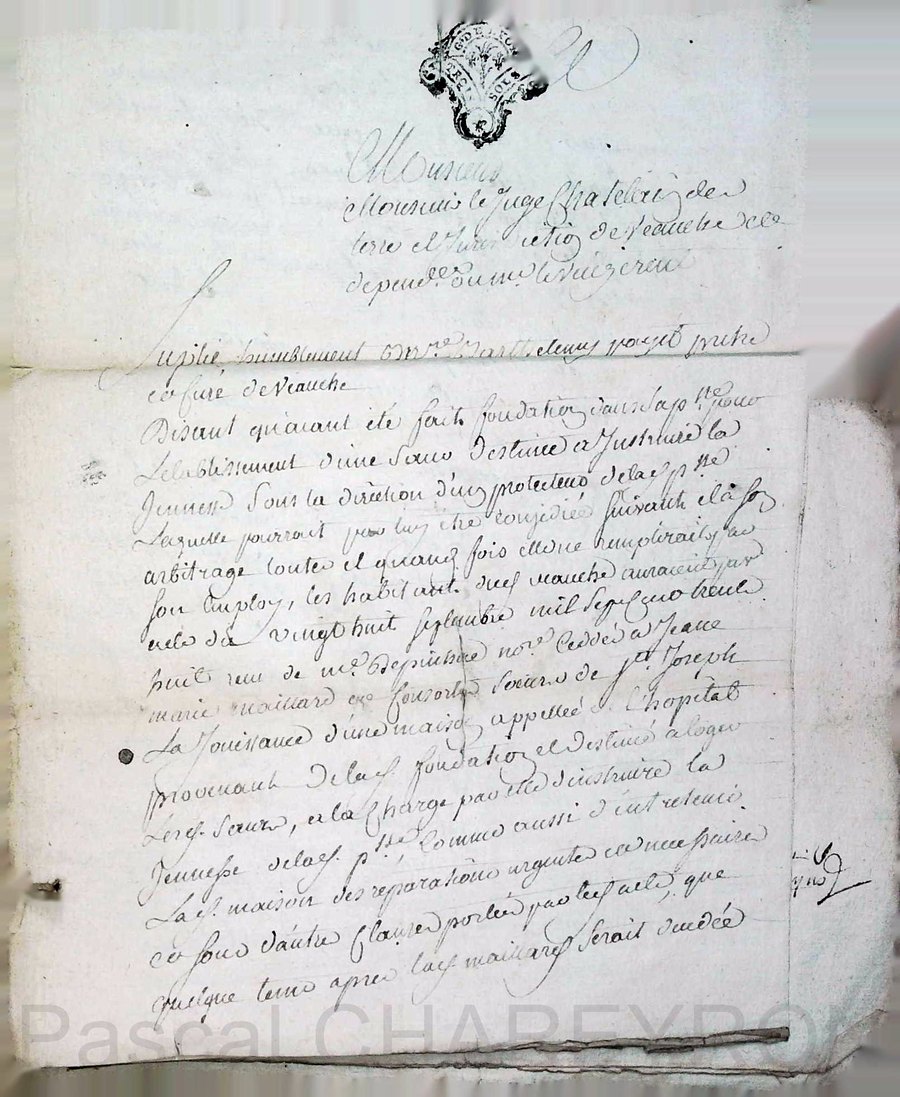 G. DE LYON
TROIS SOLS
Monsieur
Monsieur le Juge Chatelain de la
terre et Jurisdiction de Veauche et
depend.ces ou mr. le
Suplie humblement Mre. Barthelemy payet pretre
et Curé de Veauche
Disant qu'aiant été fait fondation dans la p.sse pour
L'etablissement d'une Sœur destinée a Instruire la
Jeunesse Sous la direction d'un protecteur de lad. p.sse
Laquelle pourrait par luy être congediée Suivant et à son
arbitrage toutes et quantes fois elle ne remplirait pas
son Employ, les habitants dud. veauche auraient par
acte du vingt huit septembre mil sept cent trente
huit reçu de me. Depinhac nore. Ceddé a Jeane
marie maillard et Consortes Sœurs de St. Joseph
La Jouissance d'une maison appellée de l'hopital
provenant de lad. fondation et destiné a loger
lesd. Sœurs, a la Charge par elle d'instruire la
Jeunesse de lad. p.sse, Comme aussi d'entretenir
Lad. maison des reparations urgentes et necessaires
et sous d'autres Clauses portées par led. acte, que
quelque tems apres lad. maillard serait decedée
Pascal CHAREYRON